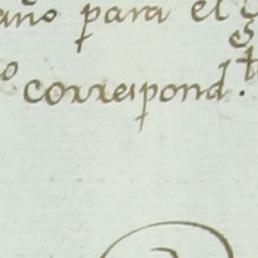 año para el
correspond.te